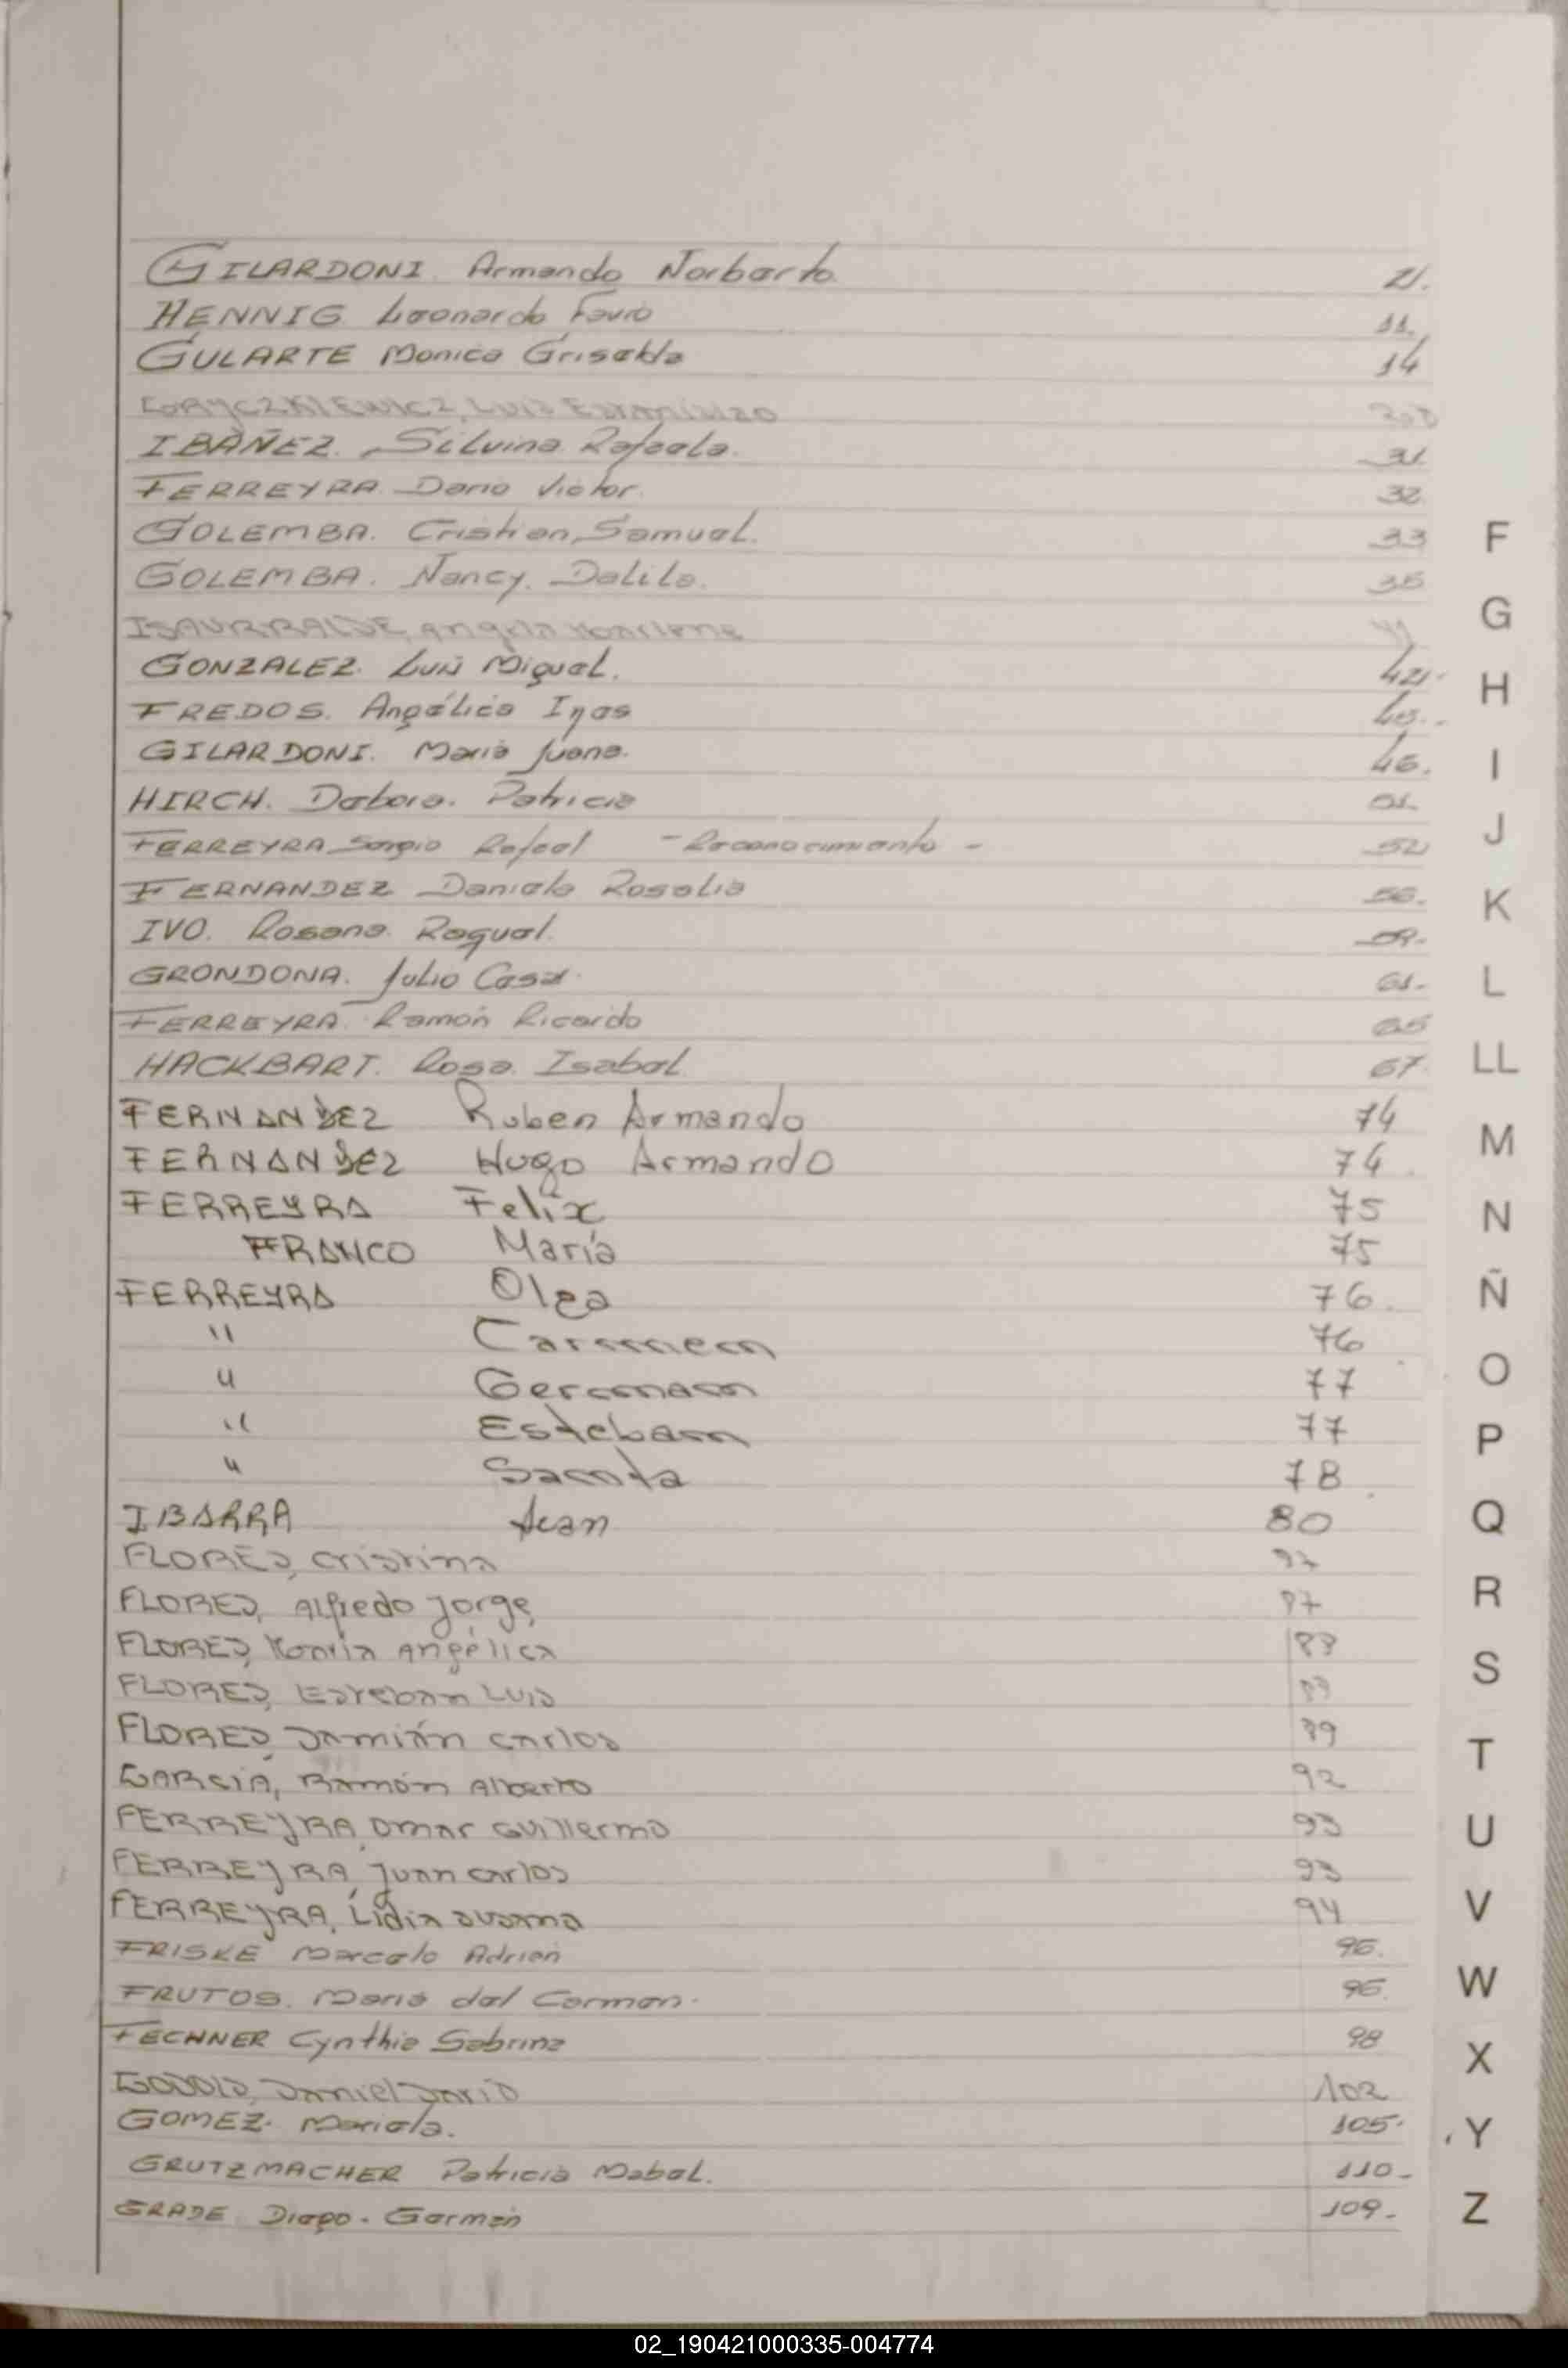 GILARDONI. Armando Norberto 21.
HENNIG. Leonardo Favio 11.
GULARTE Monica Griselda 14
IBAÑEZ. Silvina Rafaela. 31
FERREYRA. Dario Victor. 32
GOLEMBA. Cristian, Samuel. 33
GOLEMBA. Nancy. Dalila. 35
F
G
GONZALEZ. Luis Miguel. 42.
H
FREDOS. Angélica Ines
GILARDONI. Maria Juana. 46.
I
HIRCH. Debora. Patricia 51.
FERREYRA Sergio Rafael - Reconocimiento - 52
J
FERNANDEZ Daniela Rosalia 56.
K
IVO. Rosana. Raquel. 59.
GRONDONA. Julio Cesar. 61.
L
FERREYRA. Ramón Ricardo 65
HACKBART. Rosa. Isabel 67.
LL
FERNANDEZ Ruben Armando 74
M
FERNANDEZ Hugo Armando 74.
FERREYRA Felix 75
N
FRANCO María 75
FERREYRA Olga 76.
Ñ
" Carmen 76
" German 77
O
" Esteban 77
P
" Santa 78
IBARRA Juan 80
Q
FLORES, Cristina 87
FLORES, Alfredo Jorge, 87
R
FLORES, María Angélica 88
S
FLORES, Esteban Luis
FLORES, Damián Carlos 89
T
GARCIA, Ramón Alberto 92
FERREYRA, Omar Guillermo 93
U
FERREYRA, Juan Carlos 93
FERREYRA, Lidia Susana 94
V
FRISKE Marcelo Adrian 95.
FRUTOS. Maria del Carmen. 96.
W
FECHNER Cynthia Sabrina 98
X
Daniel Dario 102
GOMEZ. Mariela. 105.
Y
GRUTZMACHER Patricia Mabel. 110-
GRADE Diego. German 109-
Z
02_190421000335-004774